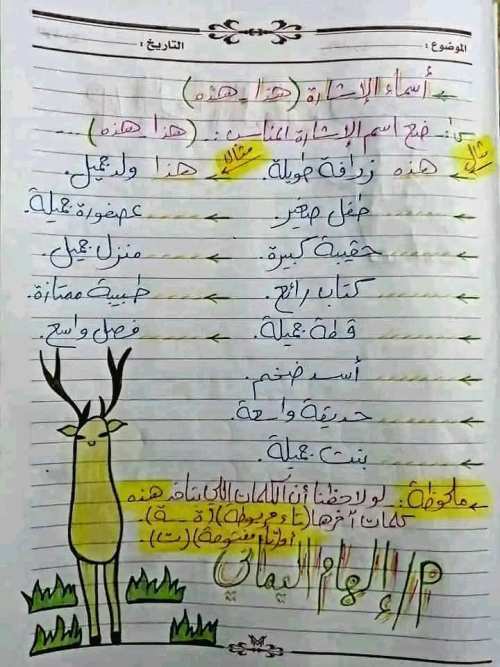 الموضوع : التاريخ :
أسماء الإشارة (هذا - هذه)
س١: ضع اسم الإشارة المناسب: (هذا - هذه) ....
مثال هذه زرافة طويلة. مثال هذا ولد جميل.
........ طفل صغير. ........ عصفورة جميلة.
........ حقيبة كبيرة. ........ منزل جميل.
........ كتاب رائع. ........ طبيبة ممتازة.
........ قطة جميلة. ........ فصل واسع.
........ أسد ضخم.
........ حديقة واسعة.
........ بنت جميلة.
ملحوظة: لو لاحظنا أن الكلمات اللي بتاخد هذه
كلمات آخرها (تاء مربوطة) (ة ـة).
أو (تاء مفتوحة) (ت).
م/ إلهام اليماني